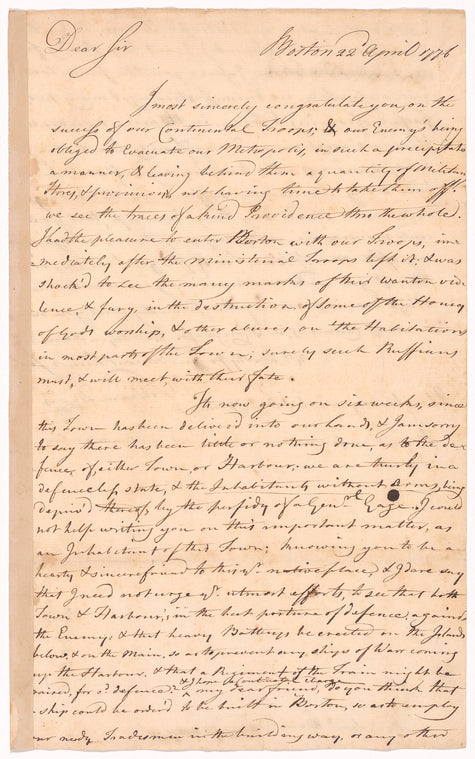 Dear Sir
Boston 22d April 1776
I most sincerely congratulate you, on the
success of our Continental Troops; & our Enemy's being
obliged to Evacuate our Metropolis, in such a precipitate
a manner, & leaving behind them a quantity of Military
Stores, & provisions, not having time to take them off
we see the traces of a kind Providence thro the whole.
I had the pleasure to enter Boston with our Troops, im
mediately after the Ministerial Troops left it; & was
shock'd to see the many marks of their wanton vio
lence, & fury, in the destruction of some of the Houses
of Gods worship, & other abuses on the Habitations
in most parts of the Town; surely such Ruffians
must, & will meet, with their fate.
Its now going on six weeks, since
this Town has been deliverd into our hands, & I am sorry
to say there has been little or nothing done, as to the de
fence of, either Town, or Harbour, we are truly in a
defenceless state, & the Inhabitants without Arms, being
depriv'd thereof, by the perfidy of a Genl. Gage. I could
not help writing you on this important matter, as
an Inhabitant of this Town; knowing you to be a
hearty & sincere friend to this yr. native place, & I dare say
that I need not urge yr. utmost efforts, to see that both
Town & Harbour, in the best posture of defence, against
the Enemy, & that heavy Batterys be erected on the Islands
below, & on the Main, so as to prevent any ships of War coming
up the Harbour. & that a Regiment of the Train might be
raised, for defence &
my dear friend, do you think that
ship could be order'd to be built in Boston, so as to employ
our needy Tradesmen in the building way, or any other